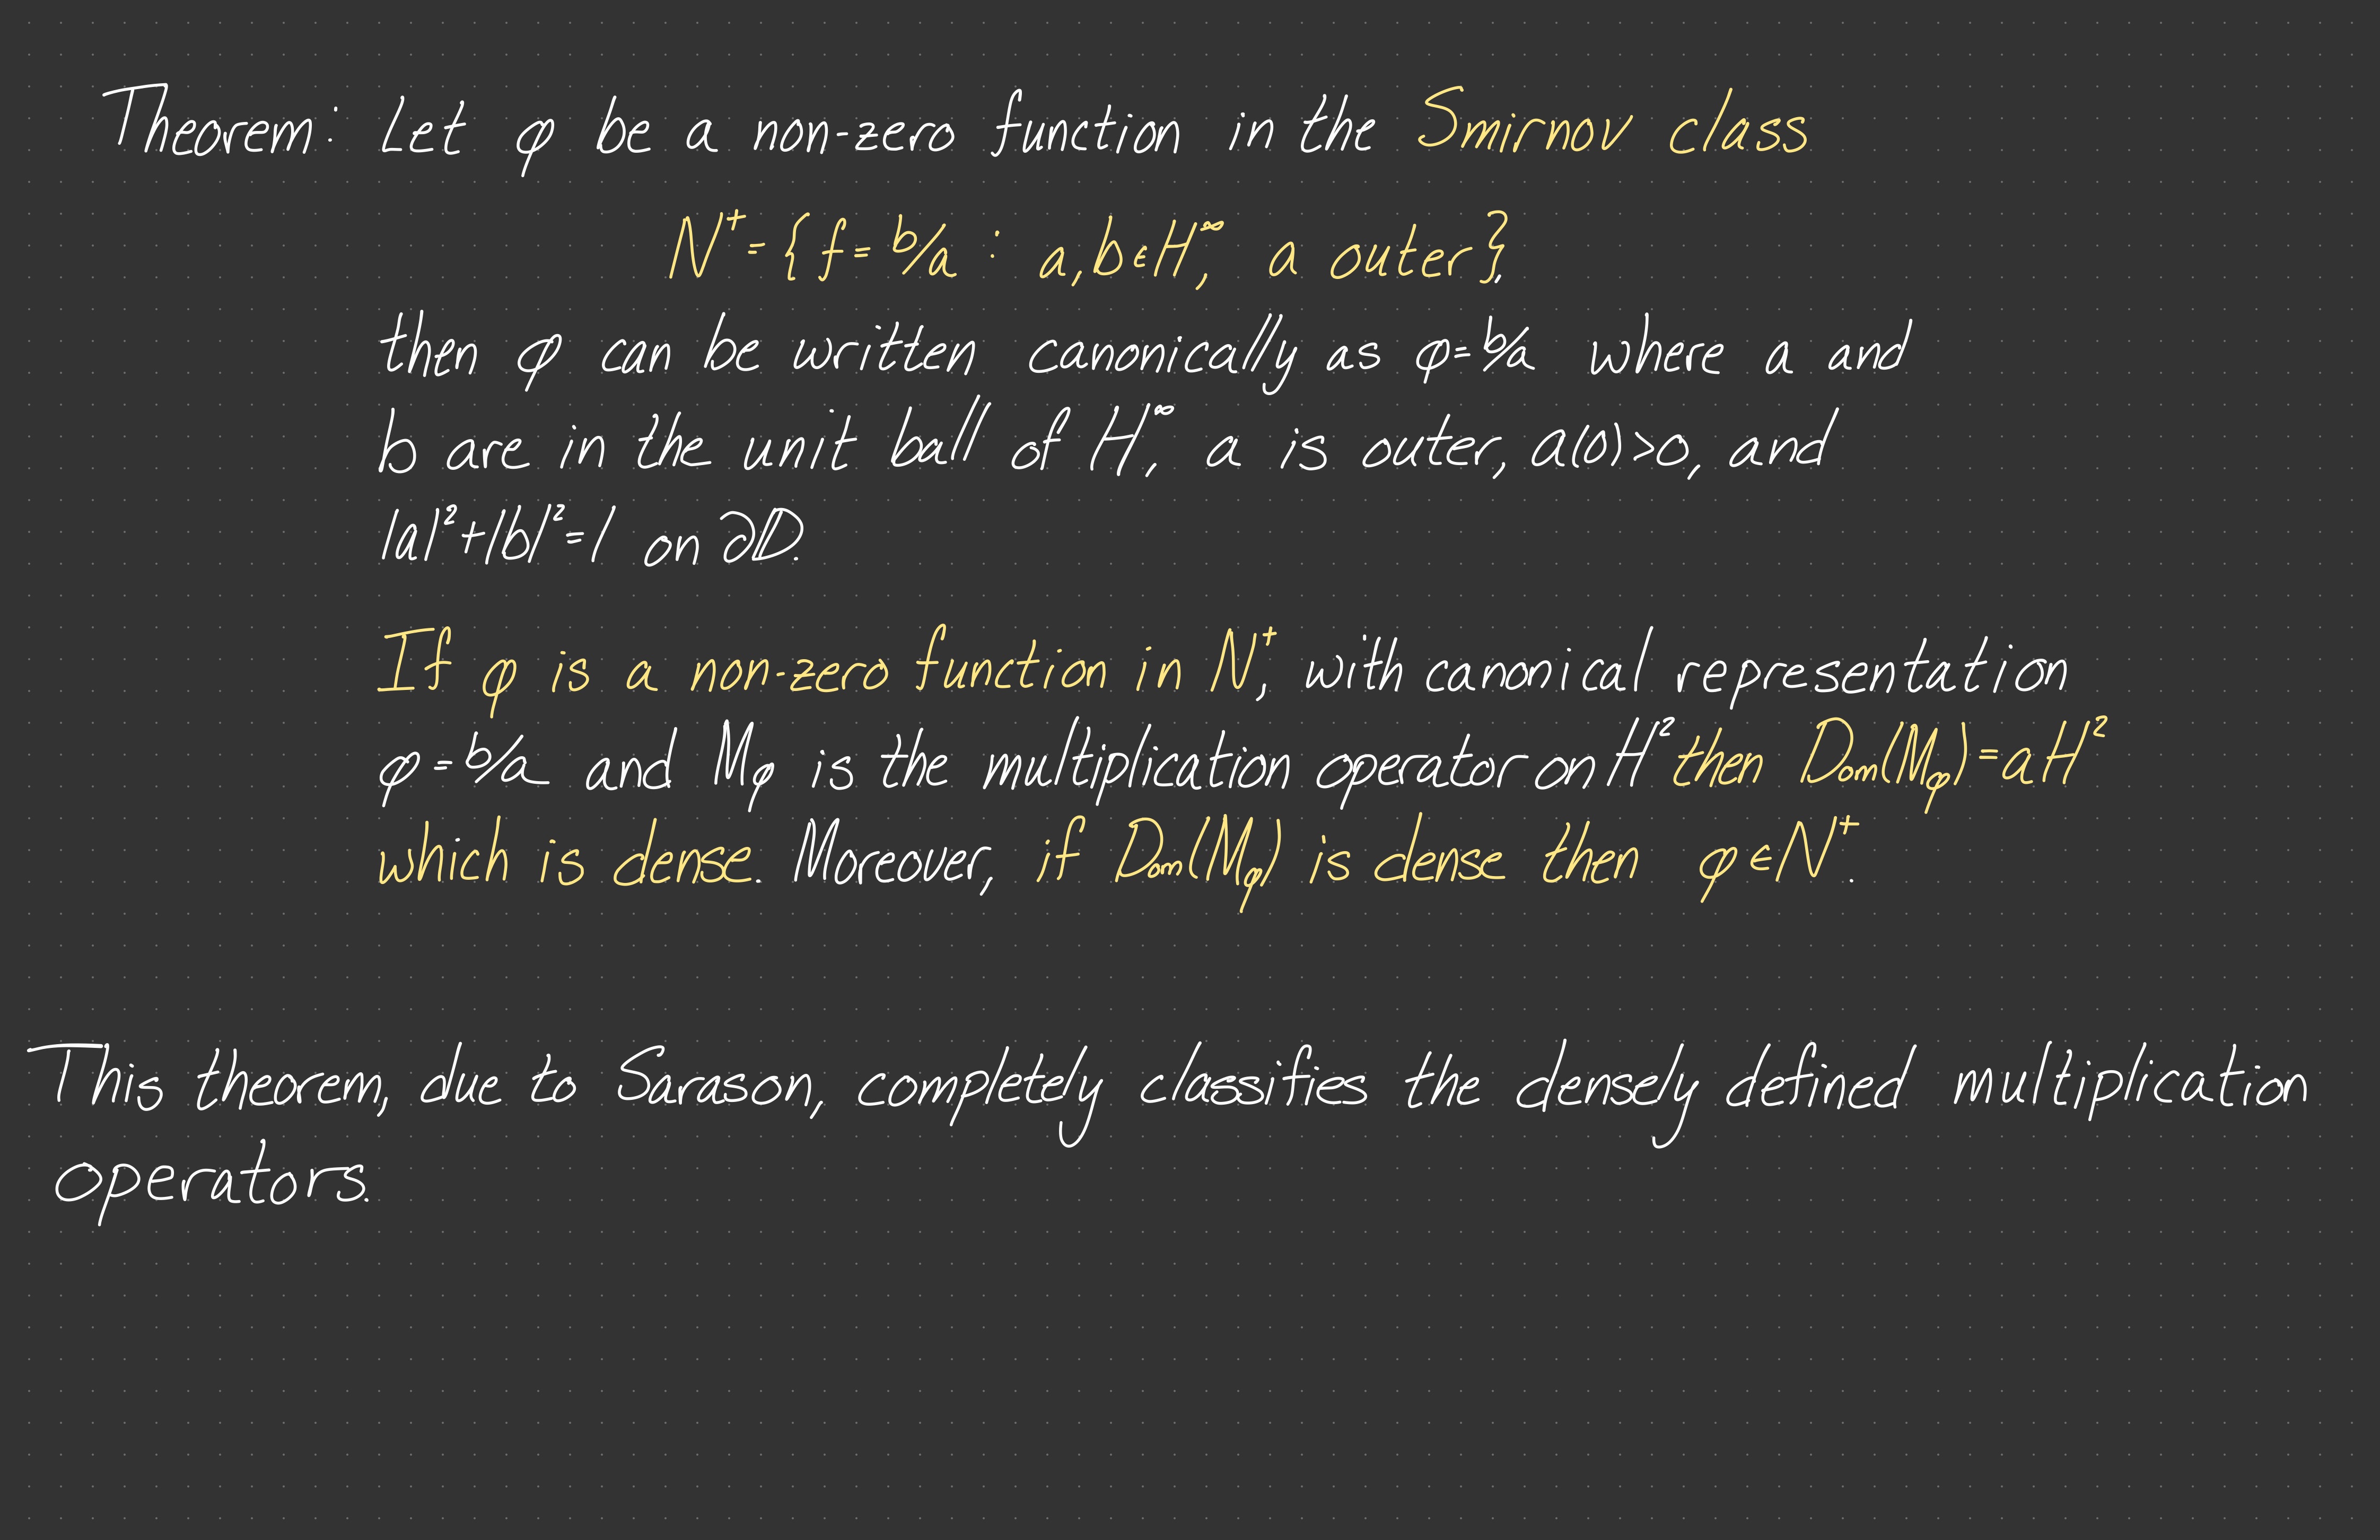 Theorem: Let φ be a non-zero function in the Smirnov class
N⁺ = {f = b/a : a, b ∈ H^∞, a outer},
then φ can be written canonically as φ = b/a where a and
b are in the unit ball of H^∞, a is outer, a(0)>0, and
|a|²+|b|²=1 on ∂𝔻.
If φ is a non-zero function in N⁺, with canonical representation
φ = b/a and M_φ is the multiplication operator on H² then Dom(M_φ) = aH²
which is dense. Moreover, if Dom(M_φ) is dense then φ ∈ N⁺.
This theorem, due to Sarason, completely classifies the densely defined multiplication
operators.